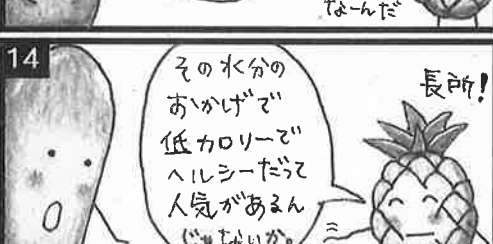 なーんだ
14
長所!
その水分の
おかげで
低カロリーで
ヘルシーだって
人気があるん
じゃないか。